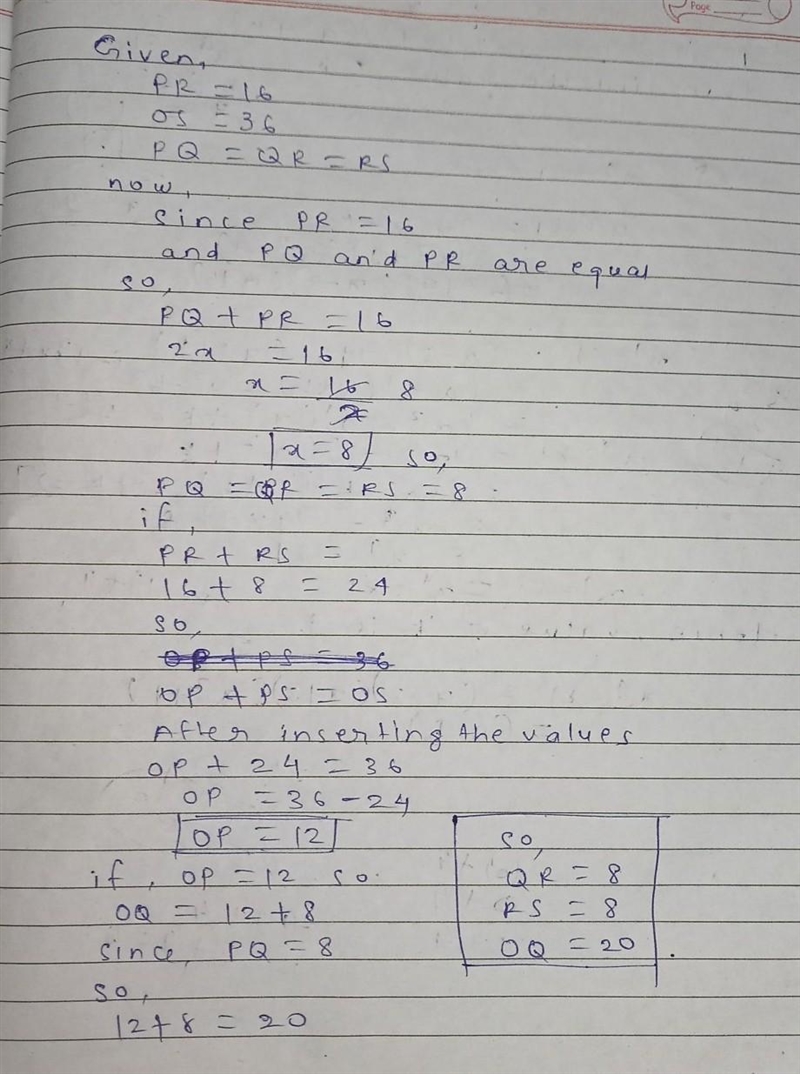 Page
Given,
PR = 16
OS = 36
PQ = QR = RS
now,
since PR = 16
and PQ and PR are equal
so,
PQ + PR = 16
2x = 16
x = 16/2 8
x = 8 so,
PQ = QR = RS = 8
if,
PR + RS =
16 + 8 = 24
so,
OP + PS = 36
OP + PS = OS
After inserting the values
OP + 24 = 36
OP = 36 - 24
OP = 12
if, OP = 12 so
OQ = 12 + 8
since, PQ = 8
so,
12 + 8 = 20
so,
QR = 8
RS = 8
OQ = 20.